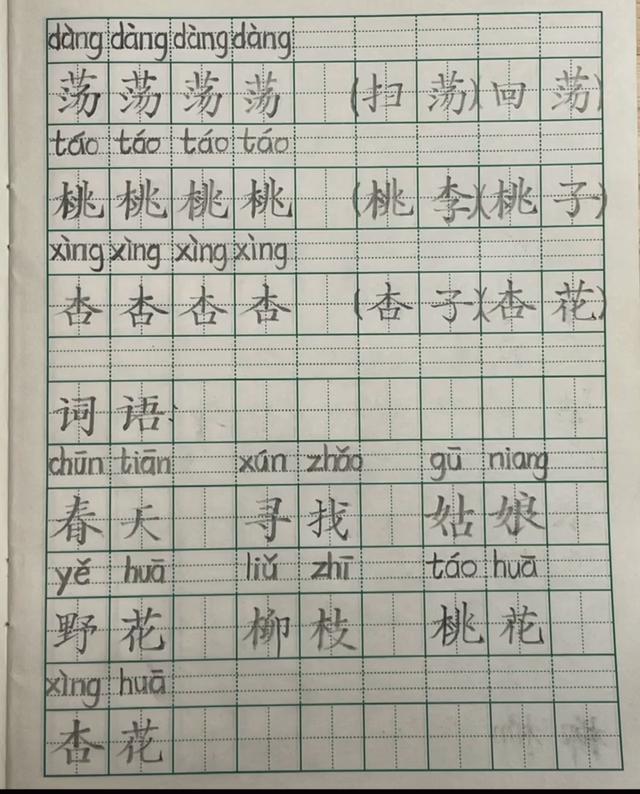 dàng dàng dàng dàng
荡 荡 荡 荡 (扫 荡)(回 荡)
táo táo táo táo
桃 桃 桃 桃 (桃 李)(桃 子)
xìng xìng xìng xìng
杏 杏 杏 杏 (杏 子)(杏 花)
词 语:
chūn tiān xún zhǎo gū niang
春 天 寻 找 姑 娘
yě huā liǔ zhī táo huā
野 花 柳 枝 桃 花
xìng huā
杏 花